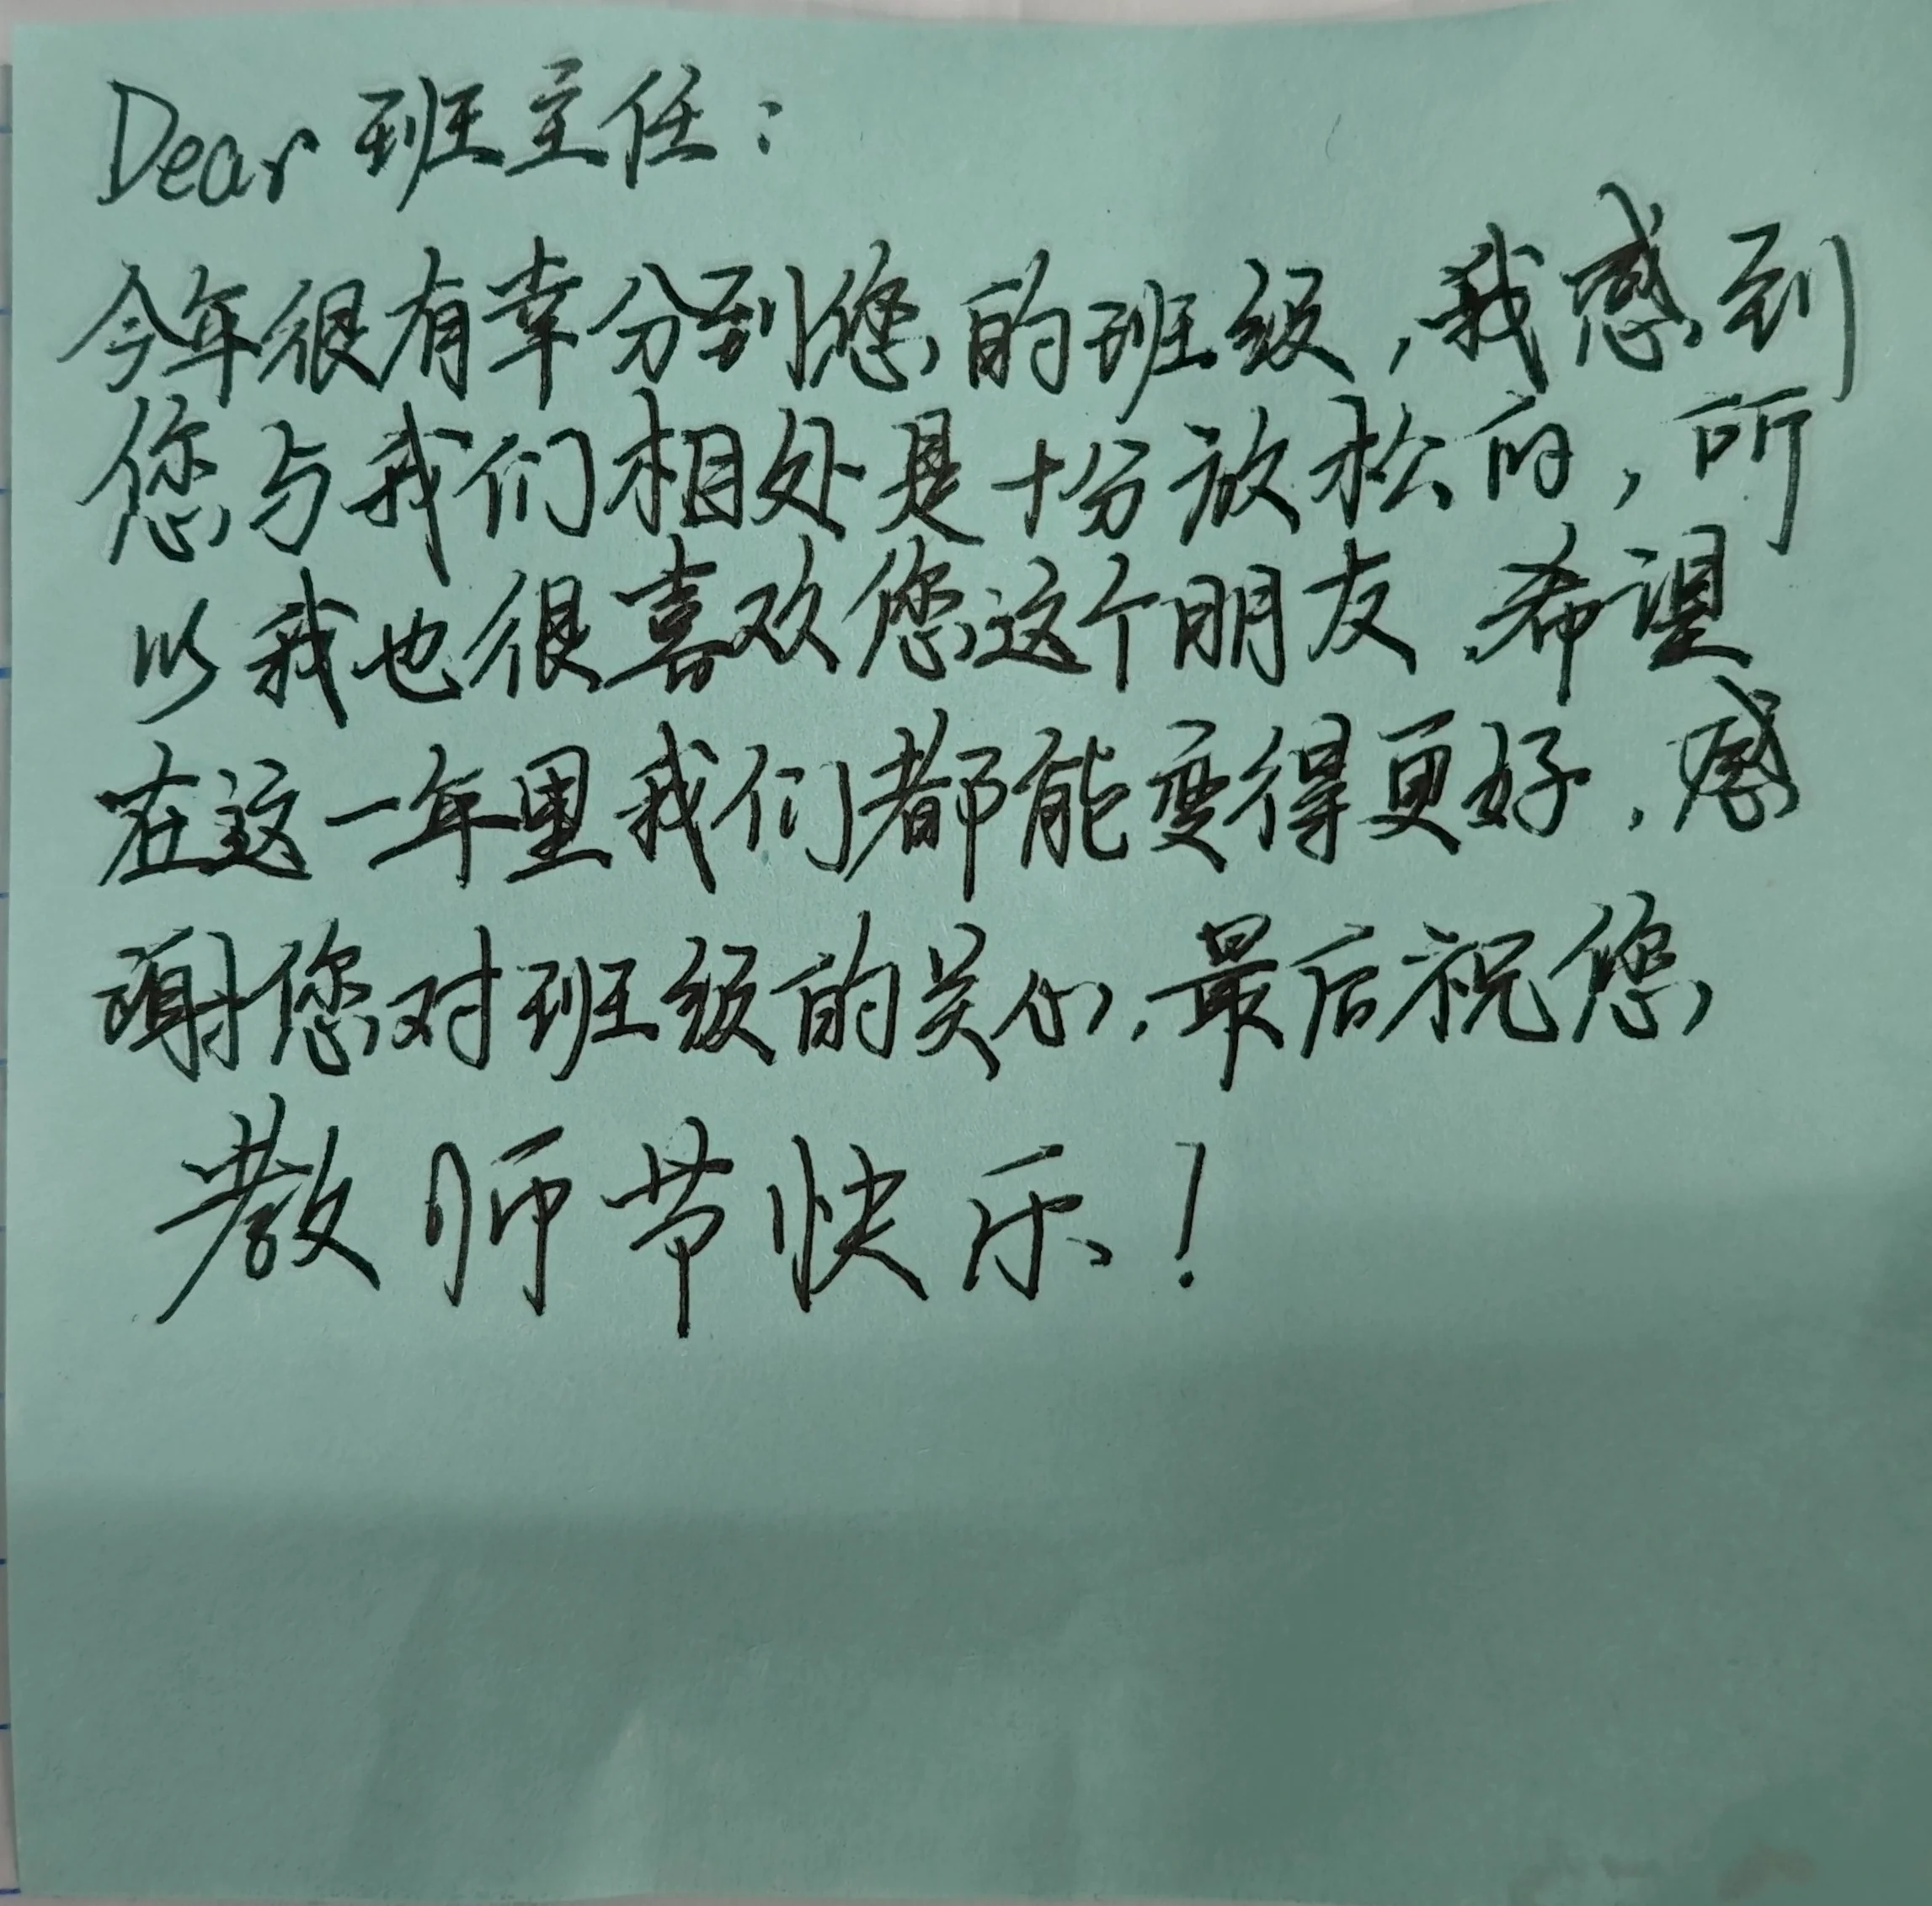 Dear 班主任：
今年很有幸分到您的班级，我感到
您与我们相处是十份放松的，所
以我也很喜欢您这个朋友，希望
在这一年里我们都能变得更好，感
谢您对班级的关心，最后祝您
教师节快乐！